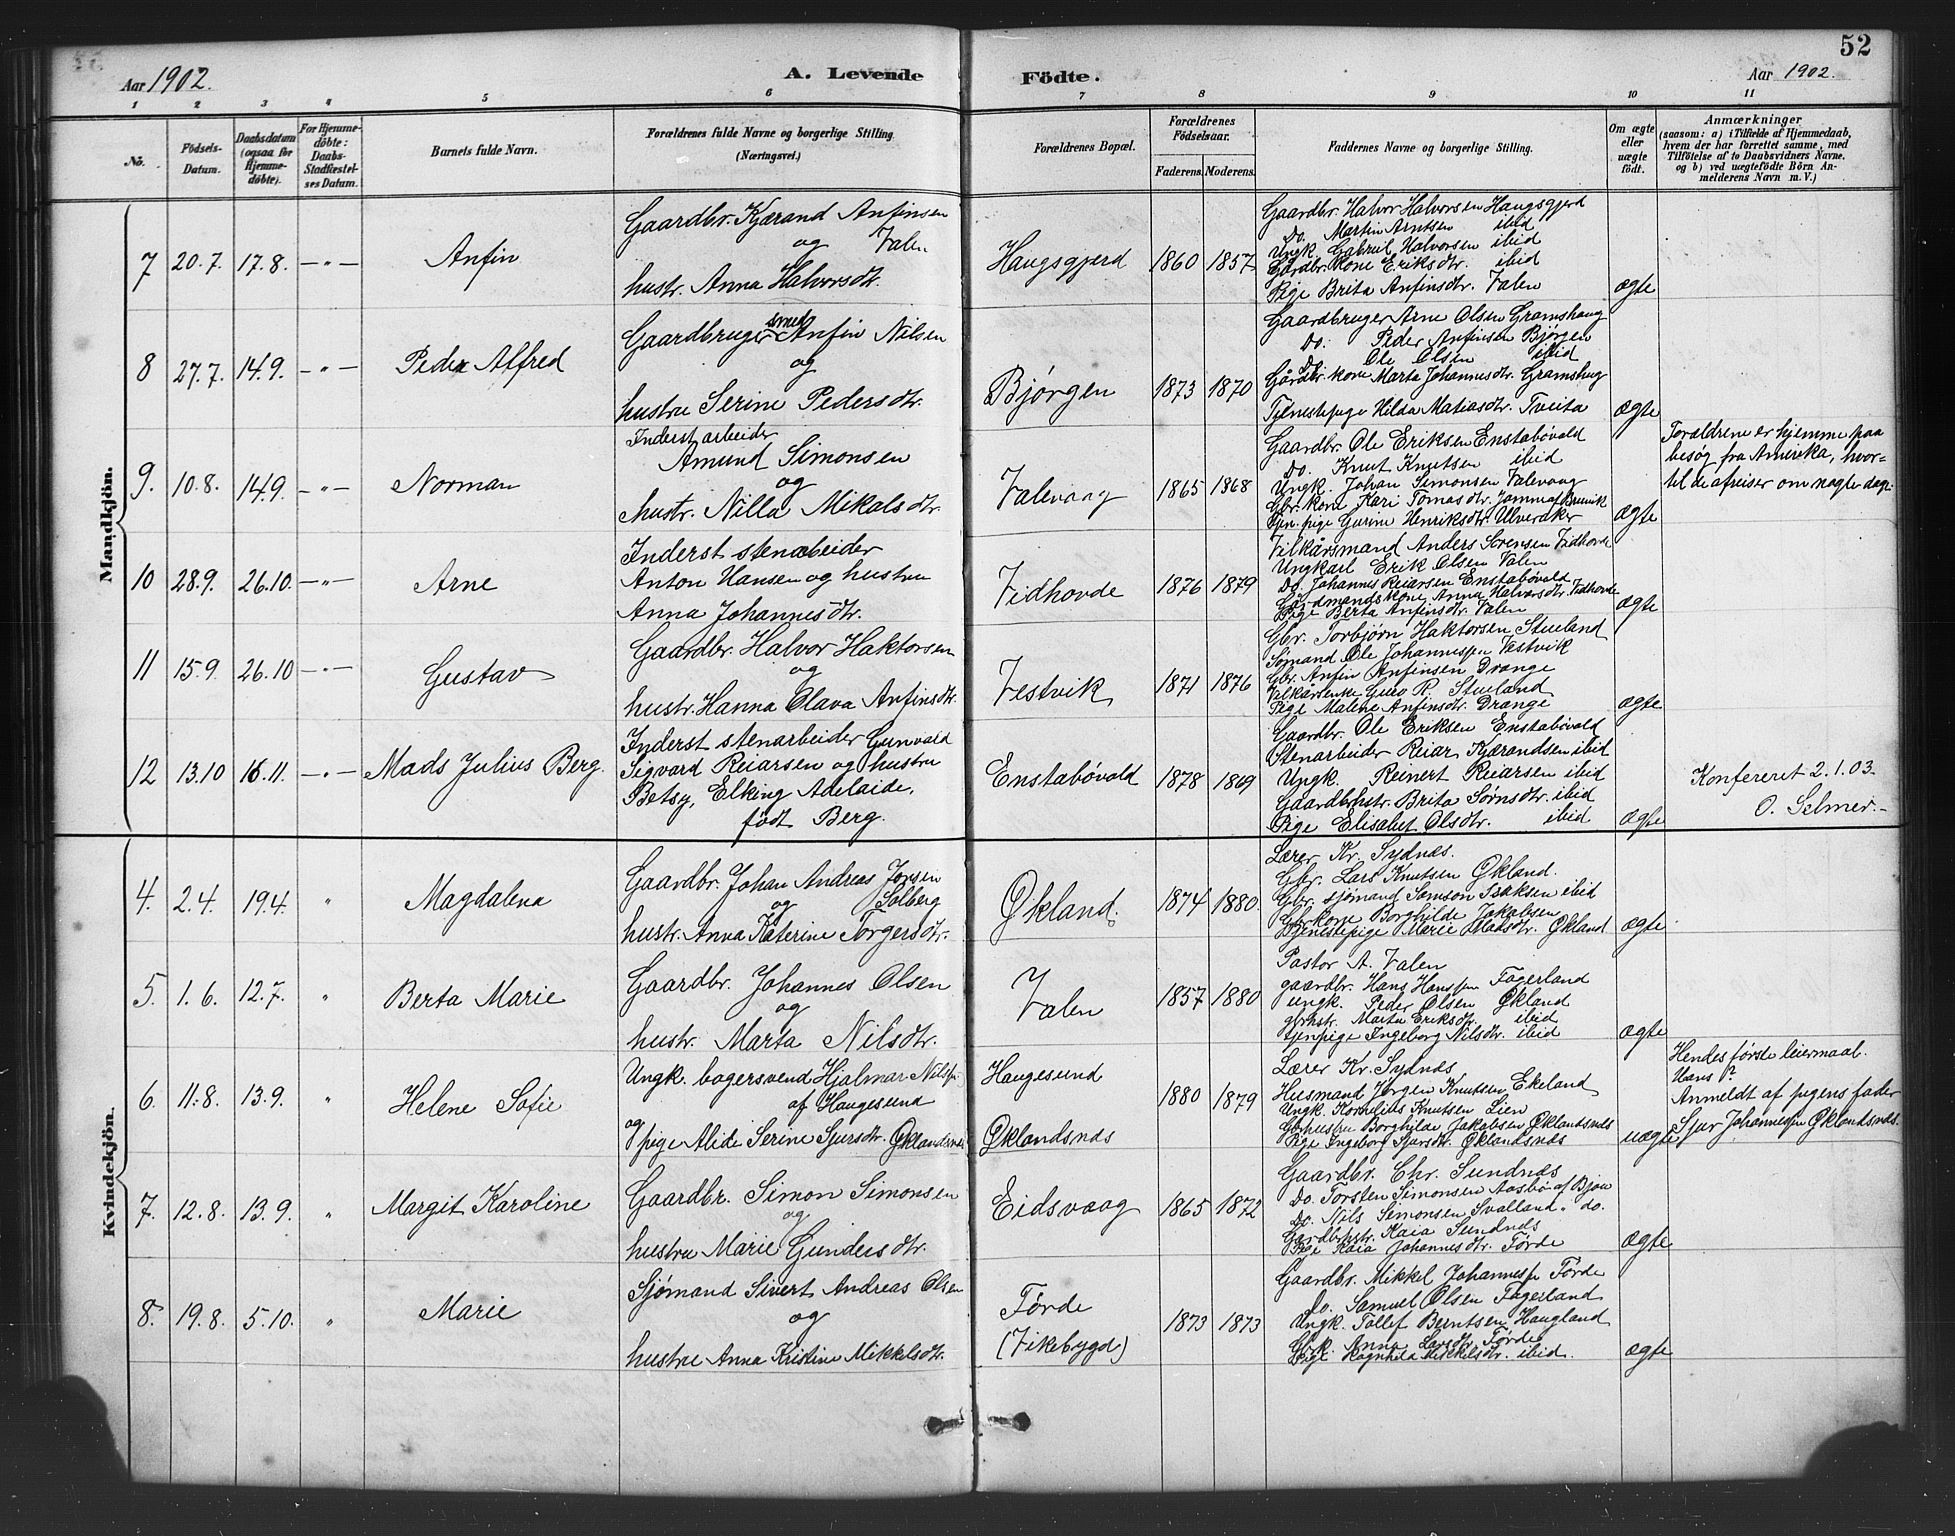 52
Aar 1902. A. Levende Födte. Aar 1902.
1 2 3 4 5 6 7 8 9 10 11
No.
Födsels-
Datum.
Daabsdatum
(ogsaa for
Hjemme-
döbte).
For Hjemme-
döbte:
Daabs-
Stadfæstel-
ses Datum.
Barnets fulde Navn.
Forældrenes fulde Navne og borgerlige Stilling.
(Næringsvei.)
Forældrenes Bopæl.
Forældrenes
Födselsaar.
Faderens. Moderens.
Faddernes Navne og borgerlige Stilling.
Om ægte
eller
uægte
født.
Anmærkninger
(saasom: a) i Tilfælde af Hjemmedaab,
hvem der har forrettet samme, med
Tilföielse af to Daabsvidners Navne,
og b) ved uægtefödte Börn An-
melderens Navn m. V.)
Mandkjön.
7 20.7. 17.8. —"— Anfin
Gaardbr. Kjærand Anfinsen
og Valen
hustr. Anna Halvorsdtr.
Haugsgjerd 1860 1857
Gaardbr. Halvor Halvorsen Haugsgjerd
Do. Martin Arntsen ibid
Ungk. Gabriel Halvorsen ibid
Gårdbr. kone Eriksdtr. ibid
Pige Brita Anfinsdtr. Valen
ægte
8 27.7. 14.9. —"— Peder Alfred
Gaardbruger smed Anfin Nilsen
og
hustru Serine Pedersdtr.
Bjørgen 1873 1870
Gaardbruger Arne Olsen Gramshaug
Do. Peder Anfinsen Bjørgen
Do Ole Olsen ibid
Gårdbr. kone Marta Johannesdtr. Gramshaug
Tjenestepige Hilda Matiasdtr. Tveita
ægte
9. 10.8. 14.9. —"— Norman
Inderst arbeider
Amund Simonsen
og
hustr. Nilla Mikalsdtr.
Valevaag 1865 1868
Gaardbr. Ole Eriksen Enstabövold
Do. Knut Knutsen ibid
Ungk. Johan Simonsen Valevaag
Gbr. kone Kari Tomasdtr.
Tjen. pige Gurine Henriksdtr. Ulveraker
ægte
Forældrene er hjemme paa
besøg fra Amerika, hvor-
til de afreiser om nogle dage.
10 28.9. 26.10. —"— Arne
Inderst stenarbeider
Anton Hansen og hustru
Anna Johannesdtr.
Vidhovde 1876 1879
Vilkårsmand Anders Sørensen Vidhovde
Ungkarl Erik Olsen Valen
Do. Johannes Reiarsen Enstabövold
Gårdmandskone Anna Halvorsdtr. Vidhovde
Pige Berta Anfinsdtr. Valen
ægte
11 15.9. 26.10 —"— Gustav
Gaardbr. Halvor Haktorsen
og
hustr. Hanna Olava Anfinsdtr.
Vestvik 1871 1876
Gbr. Torbjørn Haktorsen Stueland
Sømand Ole Johannessen Vestvik
Gbr. Anfin Anfinsen Drange
Vilkårsenke Guro R. Stueland
Pige Malene Anfinsdtr. Drange
ægte
12 13.10 16.11. —"— Mads Julius Berg.
Inderst stenarbeider Gunvald
Sigvard Reiarsen og hustru
Betsy, Elking Adelaide,
født Berg.
Enstabövold 1878 1869
Gaardbr. Ole Eriksen Enstabövold
Stenarbeider Reiar Kjærandsen ibid
Ungk. Reinert Reiarsen ibid
Gaardbrhstr. Brita Sørnsdtr. ibid
Pige Elisabet Olsdtr. ibid
ægte
Konfereret 2.1.03.
O. Selmer.
Kvindekjön.
4. 2.4. 19.4. " Magdalena
Gaardbr. Johan Andreas Jørsen
og Solberg
hustr. Anna Katerine Torgersdtr.
Økland. 1874 1880.
Lærer Kr. Sydnæs.
Gbr. Lars Knutsen Økland.
Gbr. sjømand Samson Isaksen ibid
Gbrkone Borghilde Jakobsen
Tjenestepige Marie Madsdtr. Økland
ægte
5. 1.6. 12.7. " Berta Marie
Gaardbr. Johannes Olsen
og
hustr. Marta Nilsdtr.
Valen 1857 1880
Pastor A. Valen
gaardbr. Hans Hanssen Fagerland
ungk. Peder Olsen Økland
gbrhstr. Marta Eriksdtr. ibid
tjenpige Ingeborg Nilsdtr. ibid
ægte
6. 11.8. 13.9. " Helene Sofie
Ungk. bagersvend Hjalmar Nilsen
af Haugesund
og
pige Alide Serine Sjursdtr. Øklandsnæs
Haugesund
Øklandsnæs
1880 1879
Lærer Kr. Sydnæs
Husmand Jørgen Knutsen Ekeland
Ungk. Kornelius Knutsen Lien
Gbrhustru Borghilde Jakobsen Øklandsnæs
Pige Ingeborg Sjursdtr. Øklandsnæs
uægte
Hendes første leiermaal.
Hans ?
Anmeldt af pigens fader
Sjur Johannessen Øklandsnæs.
7. 12.8. 13.9. " Margit Karoline
Gaardbr. Simon Simonsen
og
hustru Marie Gundersdtr.
Eidsvaag 1865 1872
Gaardbr. Chr. Sundnæs
Do. Torsten Simonsen Aasbø af Bjoa
Do. Nils Simonsen Svalland " do.
Gårdbrhstr. Kaia Sundnæs
Pige Kaia Johannesdtr. Førde
ægte
8. 19.8. 5.10. " Marie
Sjømand Sivert Andreas Olsen
og
hustru Anna Kristine Mikkelsdtr.
Førde
(Vikebygd)
1873 1873
Gaardbr. Mikkel Johannessen Førde
Do. Samuel Olsen Fagerland
Ungk. Tollef Berntsen Haugland
Gbrk. Anna Larsdtr. Førde
Pige Ragnhild Mikkelsdtr. ibid.
ægte